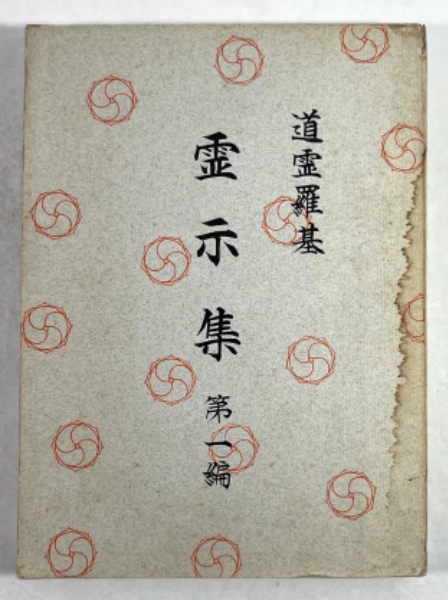 道霊羅基
霊示集 第一編